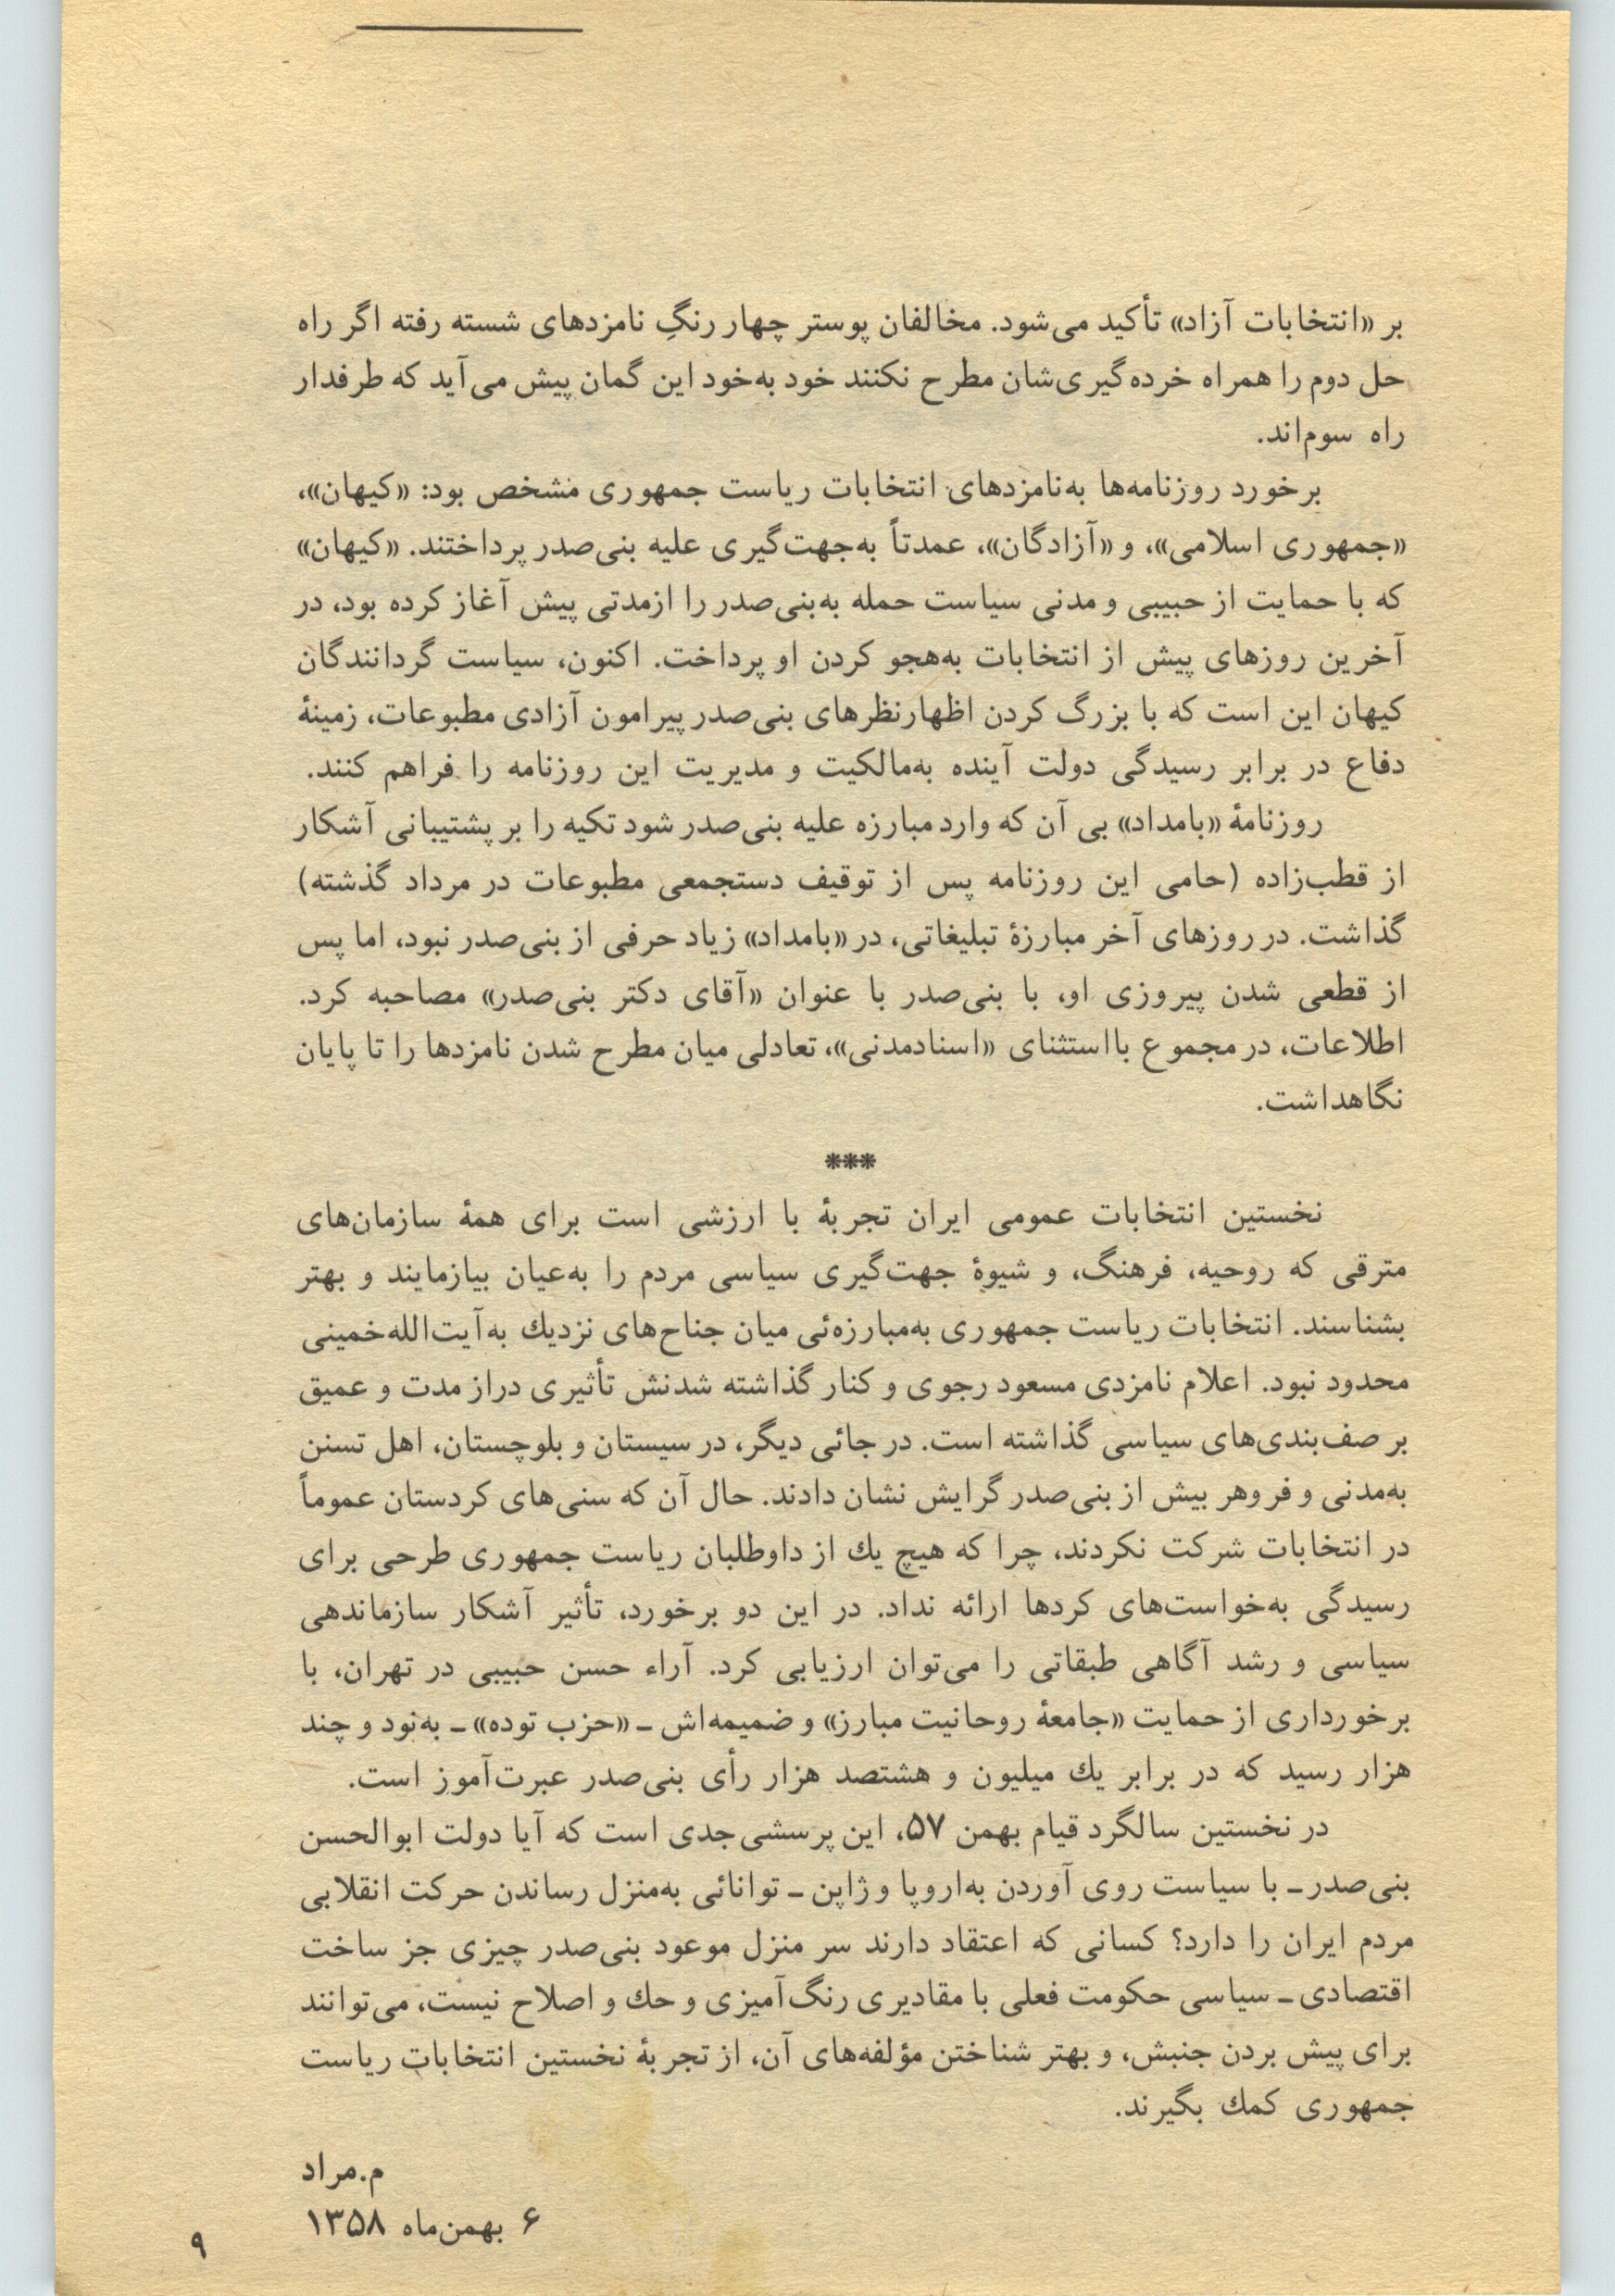 بر «انتخابات آزاد» تأکید می‌شود. مخالفان پوستر چهار رنگِ نامزدهای شسته رفته اگر راه
حل دوم را همراه خرده‌گیری‌شان مطرح نکنند خود به‌خود این گمان پیش می‌آید که طرفدار
راه سوم‌اند.
برخورد روزنامه‌ها به‌نامزدهای انتخابات ریاست جمهوری مشخص بود: «کیهان»،
«جمهوری اسلامی»، و «آزادگان»، عمدتاً به‌جهت‌گیری علیه بنی‌صدر پرداختند. «کیهان»
که با حمایت از حبیبی و مدنی سیاست حمله به‌بنی‌صدر را ازمدتی پیش آغاز کرده بود، در
آخرین روزهای پیش از انتخابات به‌هجو کردن او پرداخت. اکنون، سیاست گردانندگان
کیهان این است که با بزرگ کردن اظهارنظرهای بنی‌صدر پیرامون آزادی مطبوعات، زمینهٔ
دفاع در برابر رسیدگی دولت آینده به‌مالکیت و مدیریت این روزنامه را فراهم کنند.
روزنامهٔ «بامداد» بی آن که وارد مبارزه علیه بنی‌صدر شود تکیه را بر پشتیبانی آشکار
از قطب‌زاده (حامی این روزنامه پس از توقیف دستجمعی مطبوعات در مرداد گذشته)
گذاشت. در روزهای آخر مبارزهٔ تبلیغاتی، در «بامداد» زیاد حرفی از بنی‌صدر نبود، اما پس
از قطعی شدن پیروزی او، با بنی‌صدر با عنوان «آقای دکتر بنی‌صدر» مصاحبه کرد.
اطلاعات، در مجموع بااستثنای «اسنادمدنی»، تعادلی میان مطرح شدن نامزدها را تا پایان
نگاهداشت.
***
نخستین انتخابات عمومی ایران تجربهٔ با ارزشی است برای همهٔ سازمان‌های
مترقی که روحیه، فرهنگ، و شیوهٔ جهت‌گیری سیاسی مردم را به‌عیان بیازمایند و بهتر
بشناسند. انتخابات ریاست جمهوری به‌مبارزه‌ئی میان جناح‌های نزدیك به‌آیت‌الله‌خمینی
محدود نبود. اعلام نامزدی مسعود رجوی و کنار گذاشته شدنش تأثیری دراز مدت و عمیق
بر صف‌بندی‌های سیاسی گذاشته است. در جائی دیگر، در سیستان و بلوچستان، اهل تسنن
به‌مدنی و فروهر بیش از بنی‌صدر گرایش نشان دادند. حال آن که سنی‌های کردستان عموماً
در انتخابات شرکت نکردند، چرا که هیچ یك از داوطلبان ریاست جمهوری طرحی برای
رسیدگی به‌خواست‌های کردها ارائه نداد. در این دو برخورد، تأثیر آشکار سازماندهی
سیاسی و رشد آگاهی طبقاتی را می‌توان ارزیابی کرد. آراء حسن حبیبی در تهران، با
برخورداری از حمایت «جامعهٔ روحانیت مبارز» و ضمیمه‌اش ـ «حزب توده» ـ به‌نود و چند
هزار رسید که در برابر یك میلیون و هشتصد هزار رأی بنی‌صدر عبرت‌آموز است.
در نخستین سالگرد قیام بهمن ۵۷، این پرسشی جدی است که آیا دولت ابوالحسن
بنی‌صدر ـ با سیاست روی آوردن به‌اروپا و ژاپن ـ توانائی به‌منزل رساندن حرکت انقلابی
مردم ایران را دارد؟ کسانی که اعتقاد دارند سر منزل موعود بنی‌صدر چیزی جز ساخت
اقتصادی ـ سیاسی حکومت فعلی با مقادیری رنگ‌آمیزی و حك و اصلاح نیست، می‌توانند
برای پیش بردن جنبش، و بهتر شناختن مؤلفه‌های آن، از تجربهٔ نخستین انتخابات ریاست
جمهوری کمك بگیرند.
م.مراد
۶ بهمن‌ماه ۱۳۵۸
۹